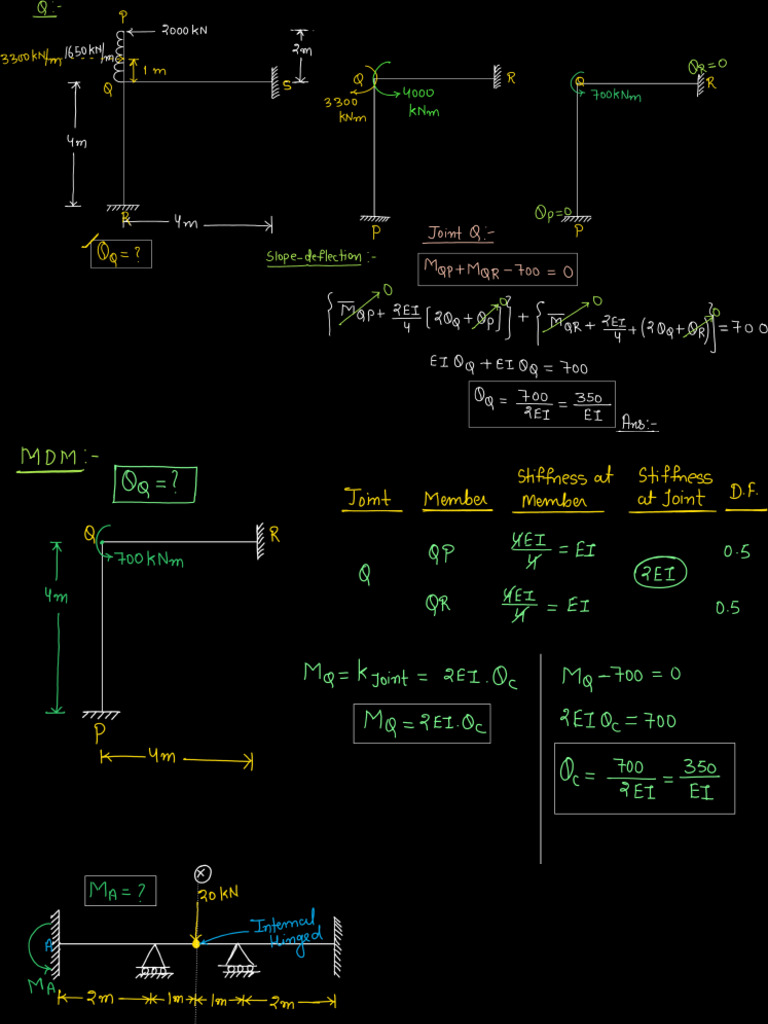 Q:-
P
2000 kN
3300 kN/m
1650 kN/m
1m
2m
Q
S
4m
R
4m
θQ = ?
Q
R
3300 kNm
4000 kNm
P
θR = 0
Q
R
700 kNm
θP = 0
P
Joint Q:-
Slope-deflection:-
MQP + MQR - 700 = 0
{M̅QP + 2EI/4 [2θQ + θP]} + {M̅QR + 2EI/4 + (2θQ + θR)} = 700
0 0 0 0
EIθQ + EIθQ = 700
θQ = 700/2EI = 350/EI
Ans:-
MDM:-
θQ = ?
Q
R
700 kNm
4m
P
4m
Joint Member Stiffness at Member Stiffness at Joint D.F.
Q QP 4EI/4 = EI 2EI 0.5
QR 4EI/4 = EI 0.5
MQ = kJoint = 2EI.θC
MQ = 2EI.θC
MQ - 700 = 0
2EIθC = 700
θC = 700/2EI = 350/EI
MA = ?
x
20 kN
Internal Hinged
A
MA
2m 1m 1m 2m